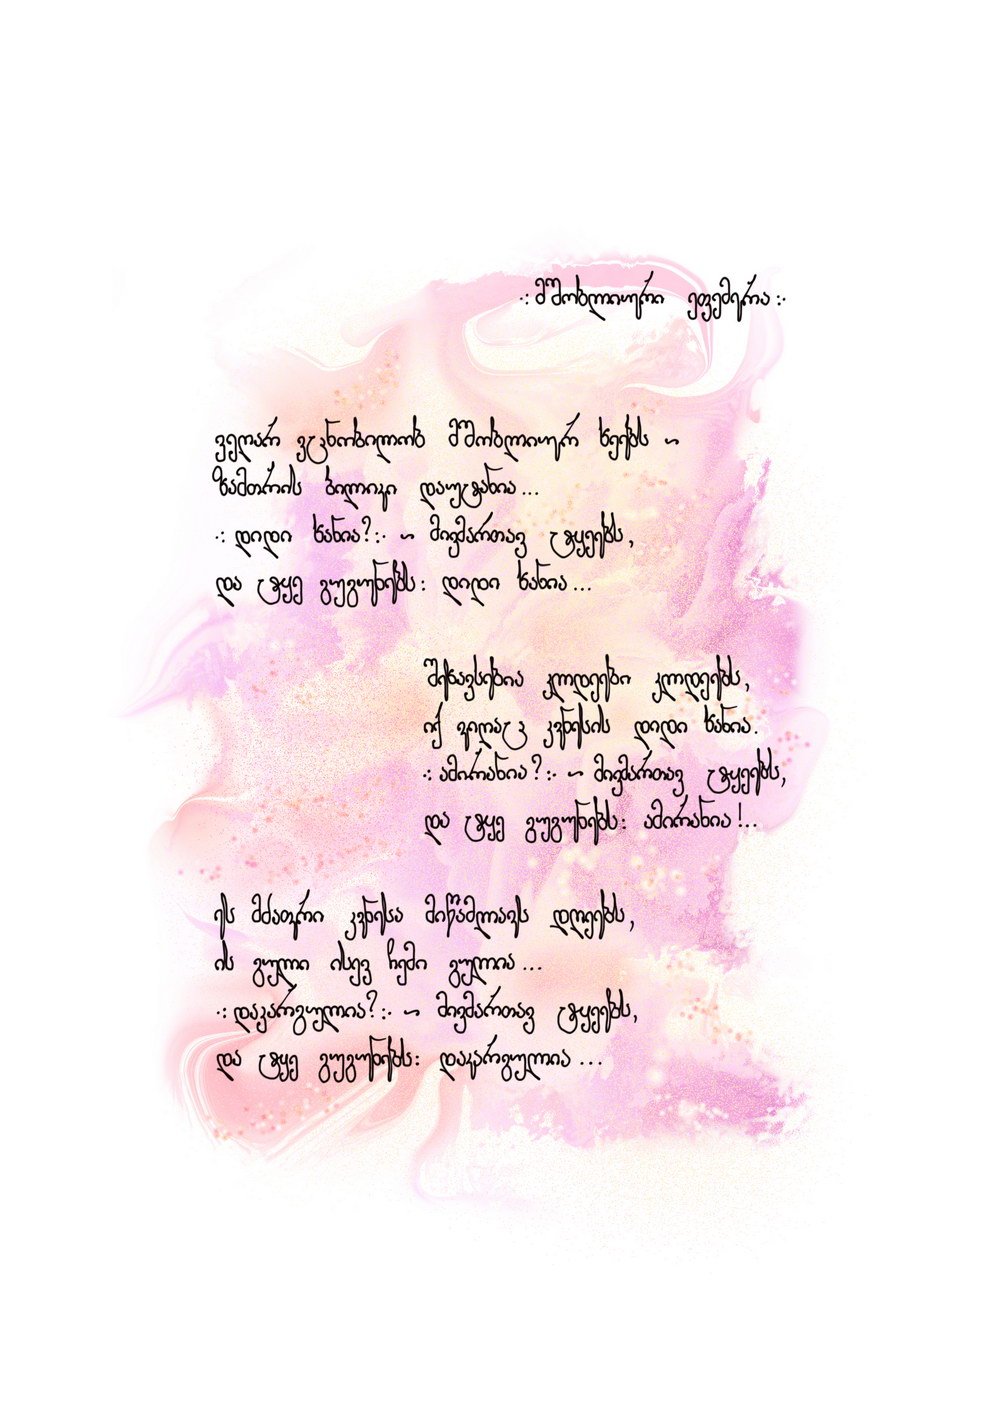 .: მშობლიური ეფემერა :.
ვეღარ ვცნობილობ მშობლიურ ხეებს ~
ზამთრის ბილიკი დაუტანია...
.: დიდი ხანია? :. ~ მივმართავ ტყეებს,
და ტყე გუგუნებს: დიდი ხანია...
შეხავსებია კლდეები კლდეებს,
იქ ვიღაც კვნესის დიდი ხანია.
.: ამირანია? :. ~ მივმართავ ტყეებს,
და ტყე გუგუნებს: ამირანია!..
ეს მძაფრი კვნესა მიწამლავს დღეებს,
ის გული ისევ ჩემი გულია...
.: დაკარგულია? :. ~ მივმართავ ტყეებს,
და ტყე გუგუნებს: დაკარგულია...